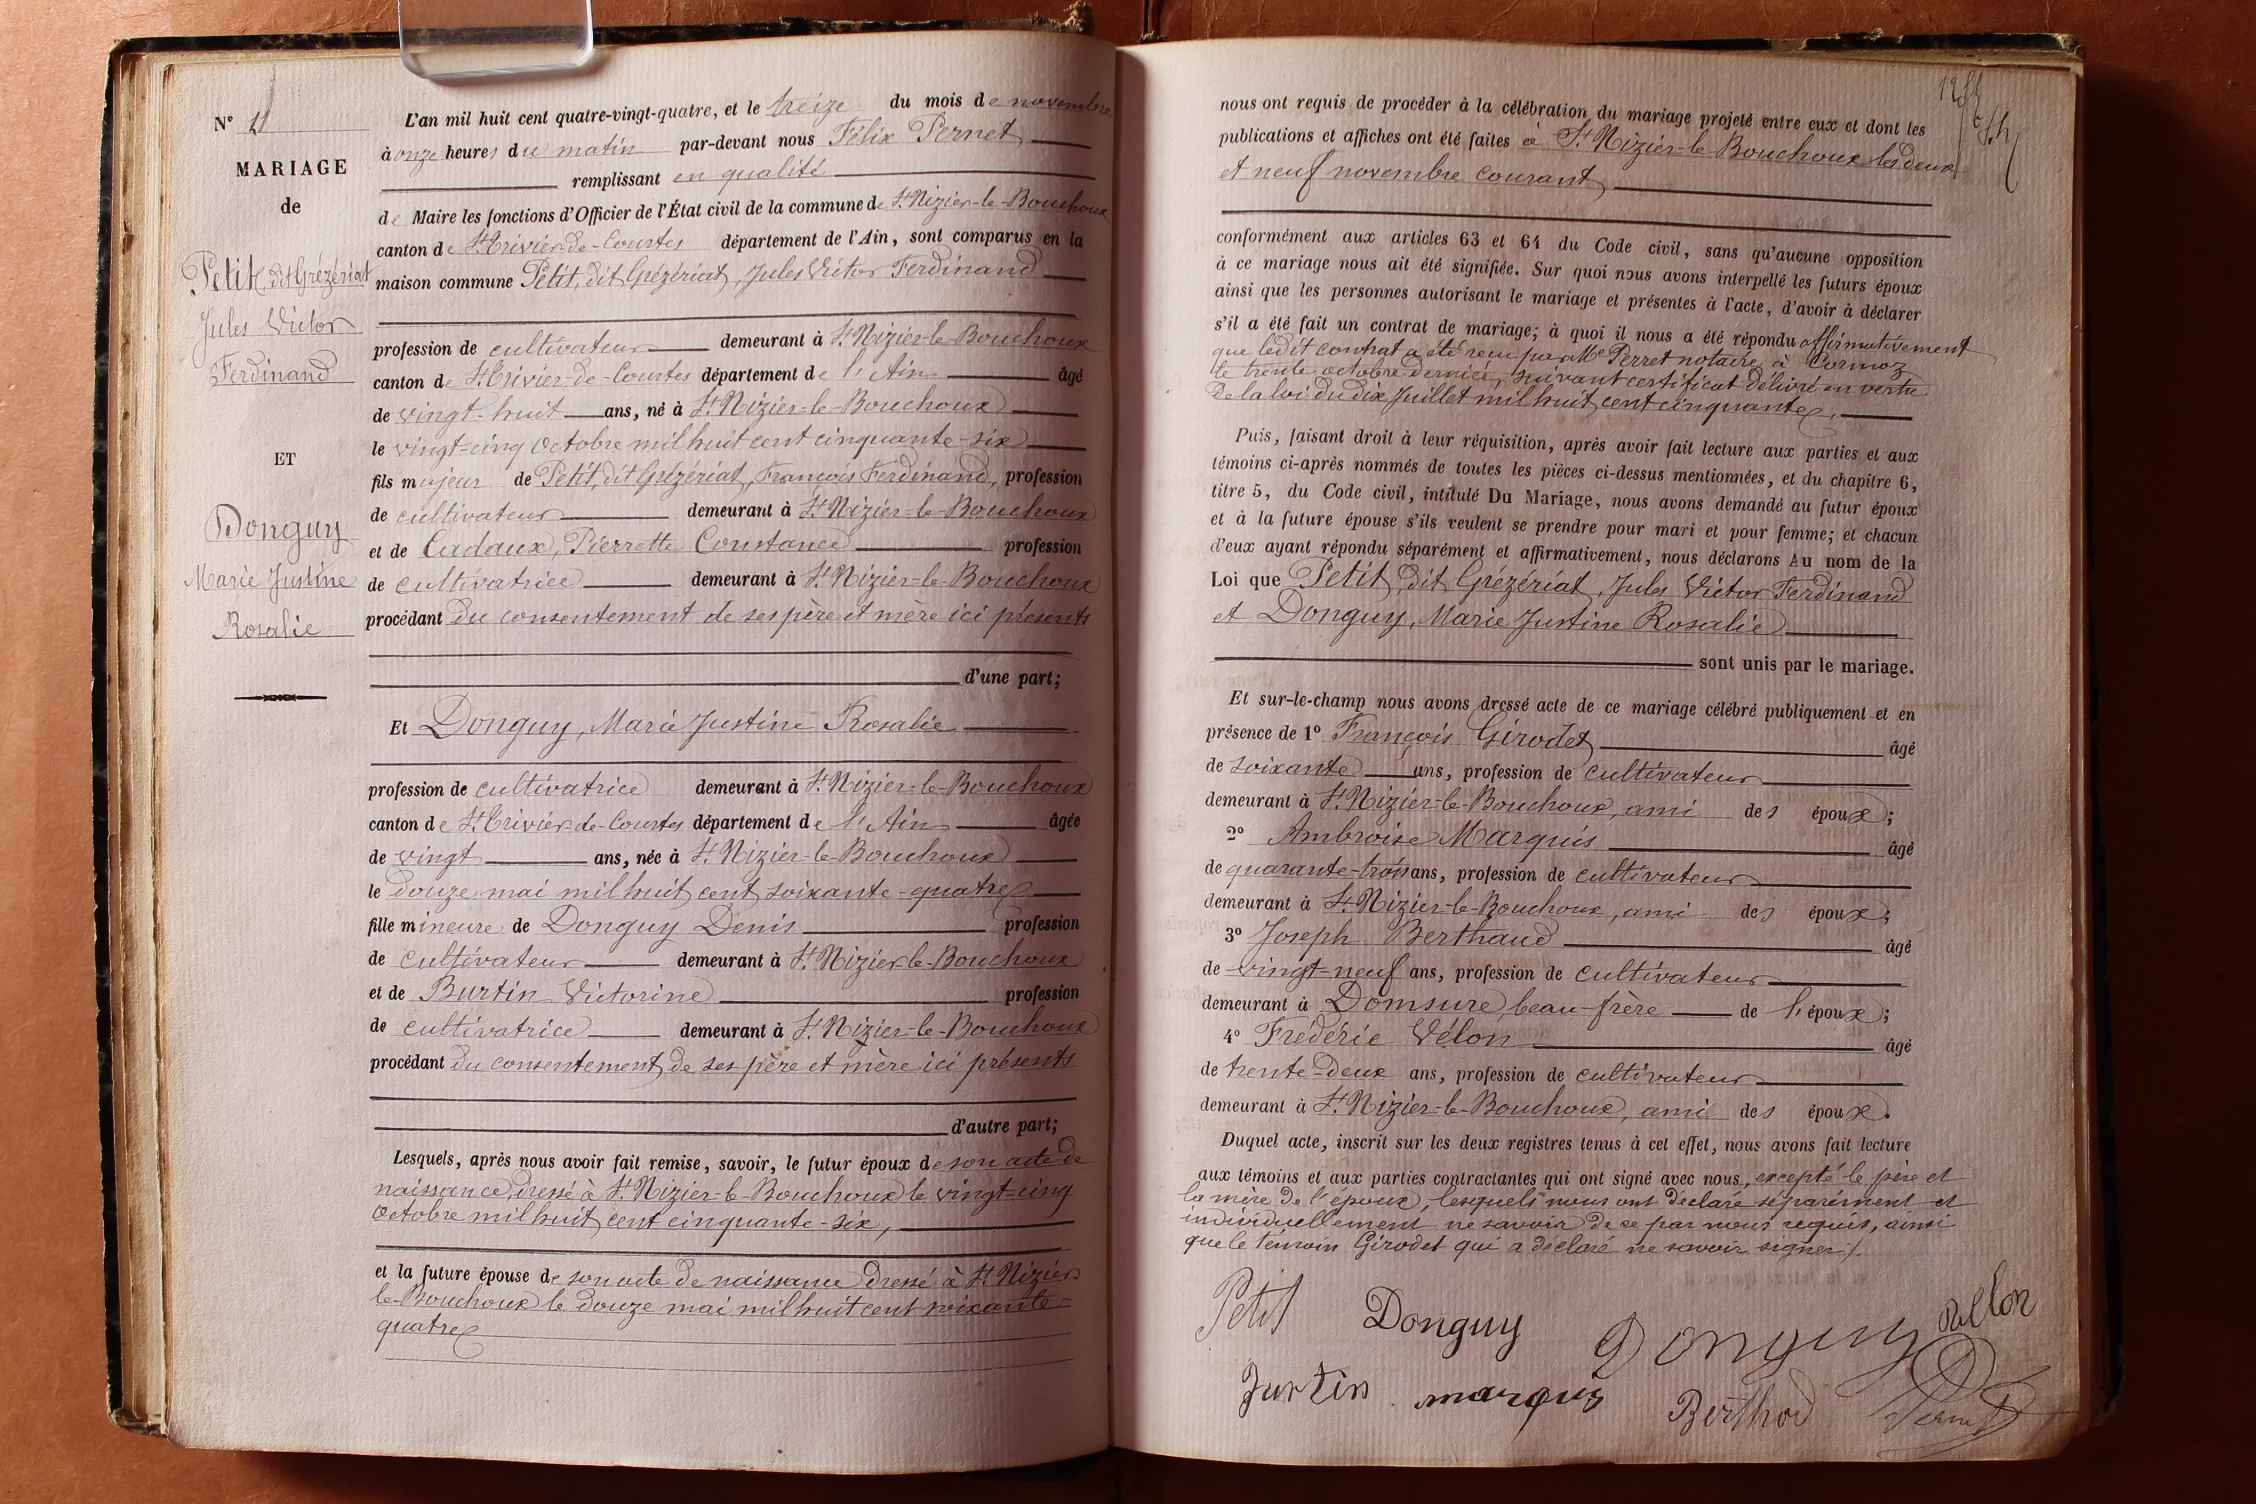 N° 11
MARIAGE
de
Petit, dit Grézériat
Jules Victor
Ferdinand
ET
Donguy
Marie Justine
Rosalie
L'an mil huit cent quatre-vingt-quatre, et le treize du mois de novembre
à onze heures du matin par-devant nous Félix Pernet
remplissant en qualité
de Maire les fonctions d'Officier de l'État civil de la commune de St Nizier-le-Bouchoux
canton de St Trivier-de-Courtes département de l'Ain, sont comparus en la
maison commune Petit, dit Grézériat, Jules Victor Ferdinand
profession de cultivateur demeurant à St Nizier-le-Bouchoux
canton de St Trivier-de-Courtes département de l'Ain âgé
de vingt-huit ans, né à St Nizier-le-Bouchoux
le vingt-cinq octobre mil huit cent cinquante-six
fils majeur de Petit, dit Grézériat, François Ferdinand, profession
de cultivateur demeurant à St Nizier-le-Bouchoux
et de Cadaux, Pierrette Constance profession
de cultivatrice demeurant à St Nizier-le-Bouchoux
procédant du consentement de ses père et mère ici présents
d'une part;
Et Donguy, Marie Justine Rosalie
profession de cultivatrice demeurant à St Nizier-le-Bouchoux
canton de St Trivier-de-Courtes département de l'Ain âgée
de vingt ans, née à St Nizier-le-Bouchoux
le douze mai mil huit cent soixante-quatre
fille mineure de Donguy Denis profession
de cultivateur demeurant à St Nizier-le-Bouchoux
et de Burtin Victorine profession
de cultivatrice demeurant à St Nizier-le-Bouchoux
procédant du consentement de ses père et mère ici présents
d'autre part;
Lesquels, après nous avoir fait remise, savoir, le futur époux de son acte de
naissance, dressé à St Nizier-le-Bouchoux le vingt-cinq
octobre mil huit cent cinquante-six,
et la future épouse de son acte de naissance dressé à St Nizier-
le-Bouchoux le douze mai mil huit cent soixante-
quatre
nous ont requis de procéder à la célébration du mariage projeté entre eux et dont les
publications et affiches ont été faites à St Nizier-le-Bouchoux les deux
et neuf novembre courant
conformément aux articles 63 et 64 du Code civil, sans qu'aucune opposition
à ce mariage nous ait été signifiée. Sur quoi nous avons interpellé les futurs époux
ainsi que les personnes autorisant le mariage et présentes à l'acte, d'avoir à déclarer
s'il a été fait un contrat de mariage; à quoi il nous a été répondu affirmativement
que ledit contrat a été reçu par Me Perret notaire à Cormoz
le trente octobre dernier, suivant certificat délivré en vertu
de la loi du dix Juillet mil huit cent cinquante,
Puis, faisant droit à leur réquisition, après avoir fait lecture aux parties et aux
témoins ci-après nommés de toutes les pièces ci-dessus mentionnées, et du chapitre 6,
titre 5, du Code civil, intitulé Du Mariage, nous avons demandé au futur époux
et à la future épouse s'ils veulent se prendre pour mari et pour femme; et chacun
d'eux ayant répondu séparément et affirmativement, nous déclarons Au nom de la
Loi que Petit, dit Grézériat, Jules Victor Ferdinand
et Donguy, Marie Justine Rosalie
sont unis par le mariage.
Et sur-le-champ nous avons dressé acte de ce mariage célébré publiquement et en
présence de 1° François Girodet âgé
de soixante ans, profession de cultivateur
demeurant à St Nizier-le-Bouchoux, ami des époux;
2° Ambroise Marquis âgé
de quarante-trois ans, profession de cultivateur
demeurant à St Nizier-le-Bouchoux, ami des époux;
3° Joseph Berthaud âgé
de vingt-neuf ans, profession de cultivateur
demeurant à Domsure, beau-frère de l'époux;
4° Frédéric Vélon âgé
de trente-deux ans, profession de cultivateur
demeurant à St Nizier-le-Bouchoux, ami des époux.
Duquel acte, inscrit sur les deux registres tenus à cet effet, nous avons fait lecture
aux témoins et aux parties contractantes qui ont signé avec nous, excepté le père et
la mère de l'époux, lesquels nous ont déclaré séparément et
individuellement ne savoir de ce par nous requis, ainsi
que le témoin Girodet qui a déclaré ne savoir signer.
Petit Donguy Donguy
marquis Berthod Pernet